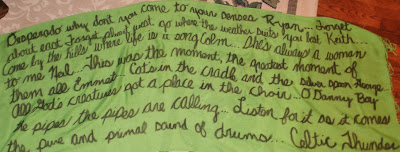 Desperado why don't you come to your senses Ryan... Forget
about east. Forget about west. Go where the weather suits you last Keith...
Come by the hills where life is a song Colm... She's always a woman
to me Neil... This was the moment, the greatest moment of
them all Emmet... Cats in the cradle and the silver spoon George
All God's creatures got a place in the choir... O Danny Boy
the pipes the pipes are calling... Listen for it as it comes
the pure and primal sound of drums... Celtic Thunder